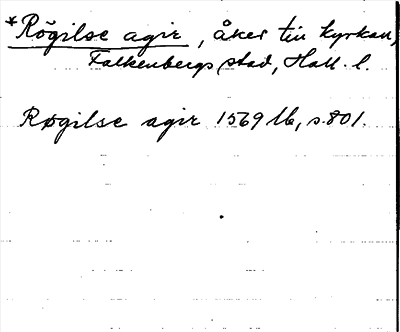 *Rögilse agir, åker till kyrkan,
Falkenbergs stad, Hall. l.
Røgilse agir 1569 Ub, s. 801.